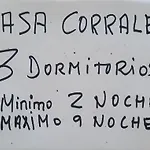 ASA CORRALE
3 DORMITORIOS
Minimo 2 NOCH
MAXIMO 9 NOCHE